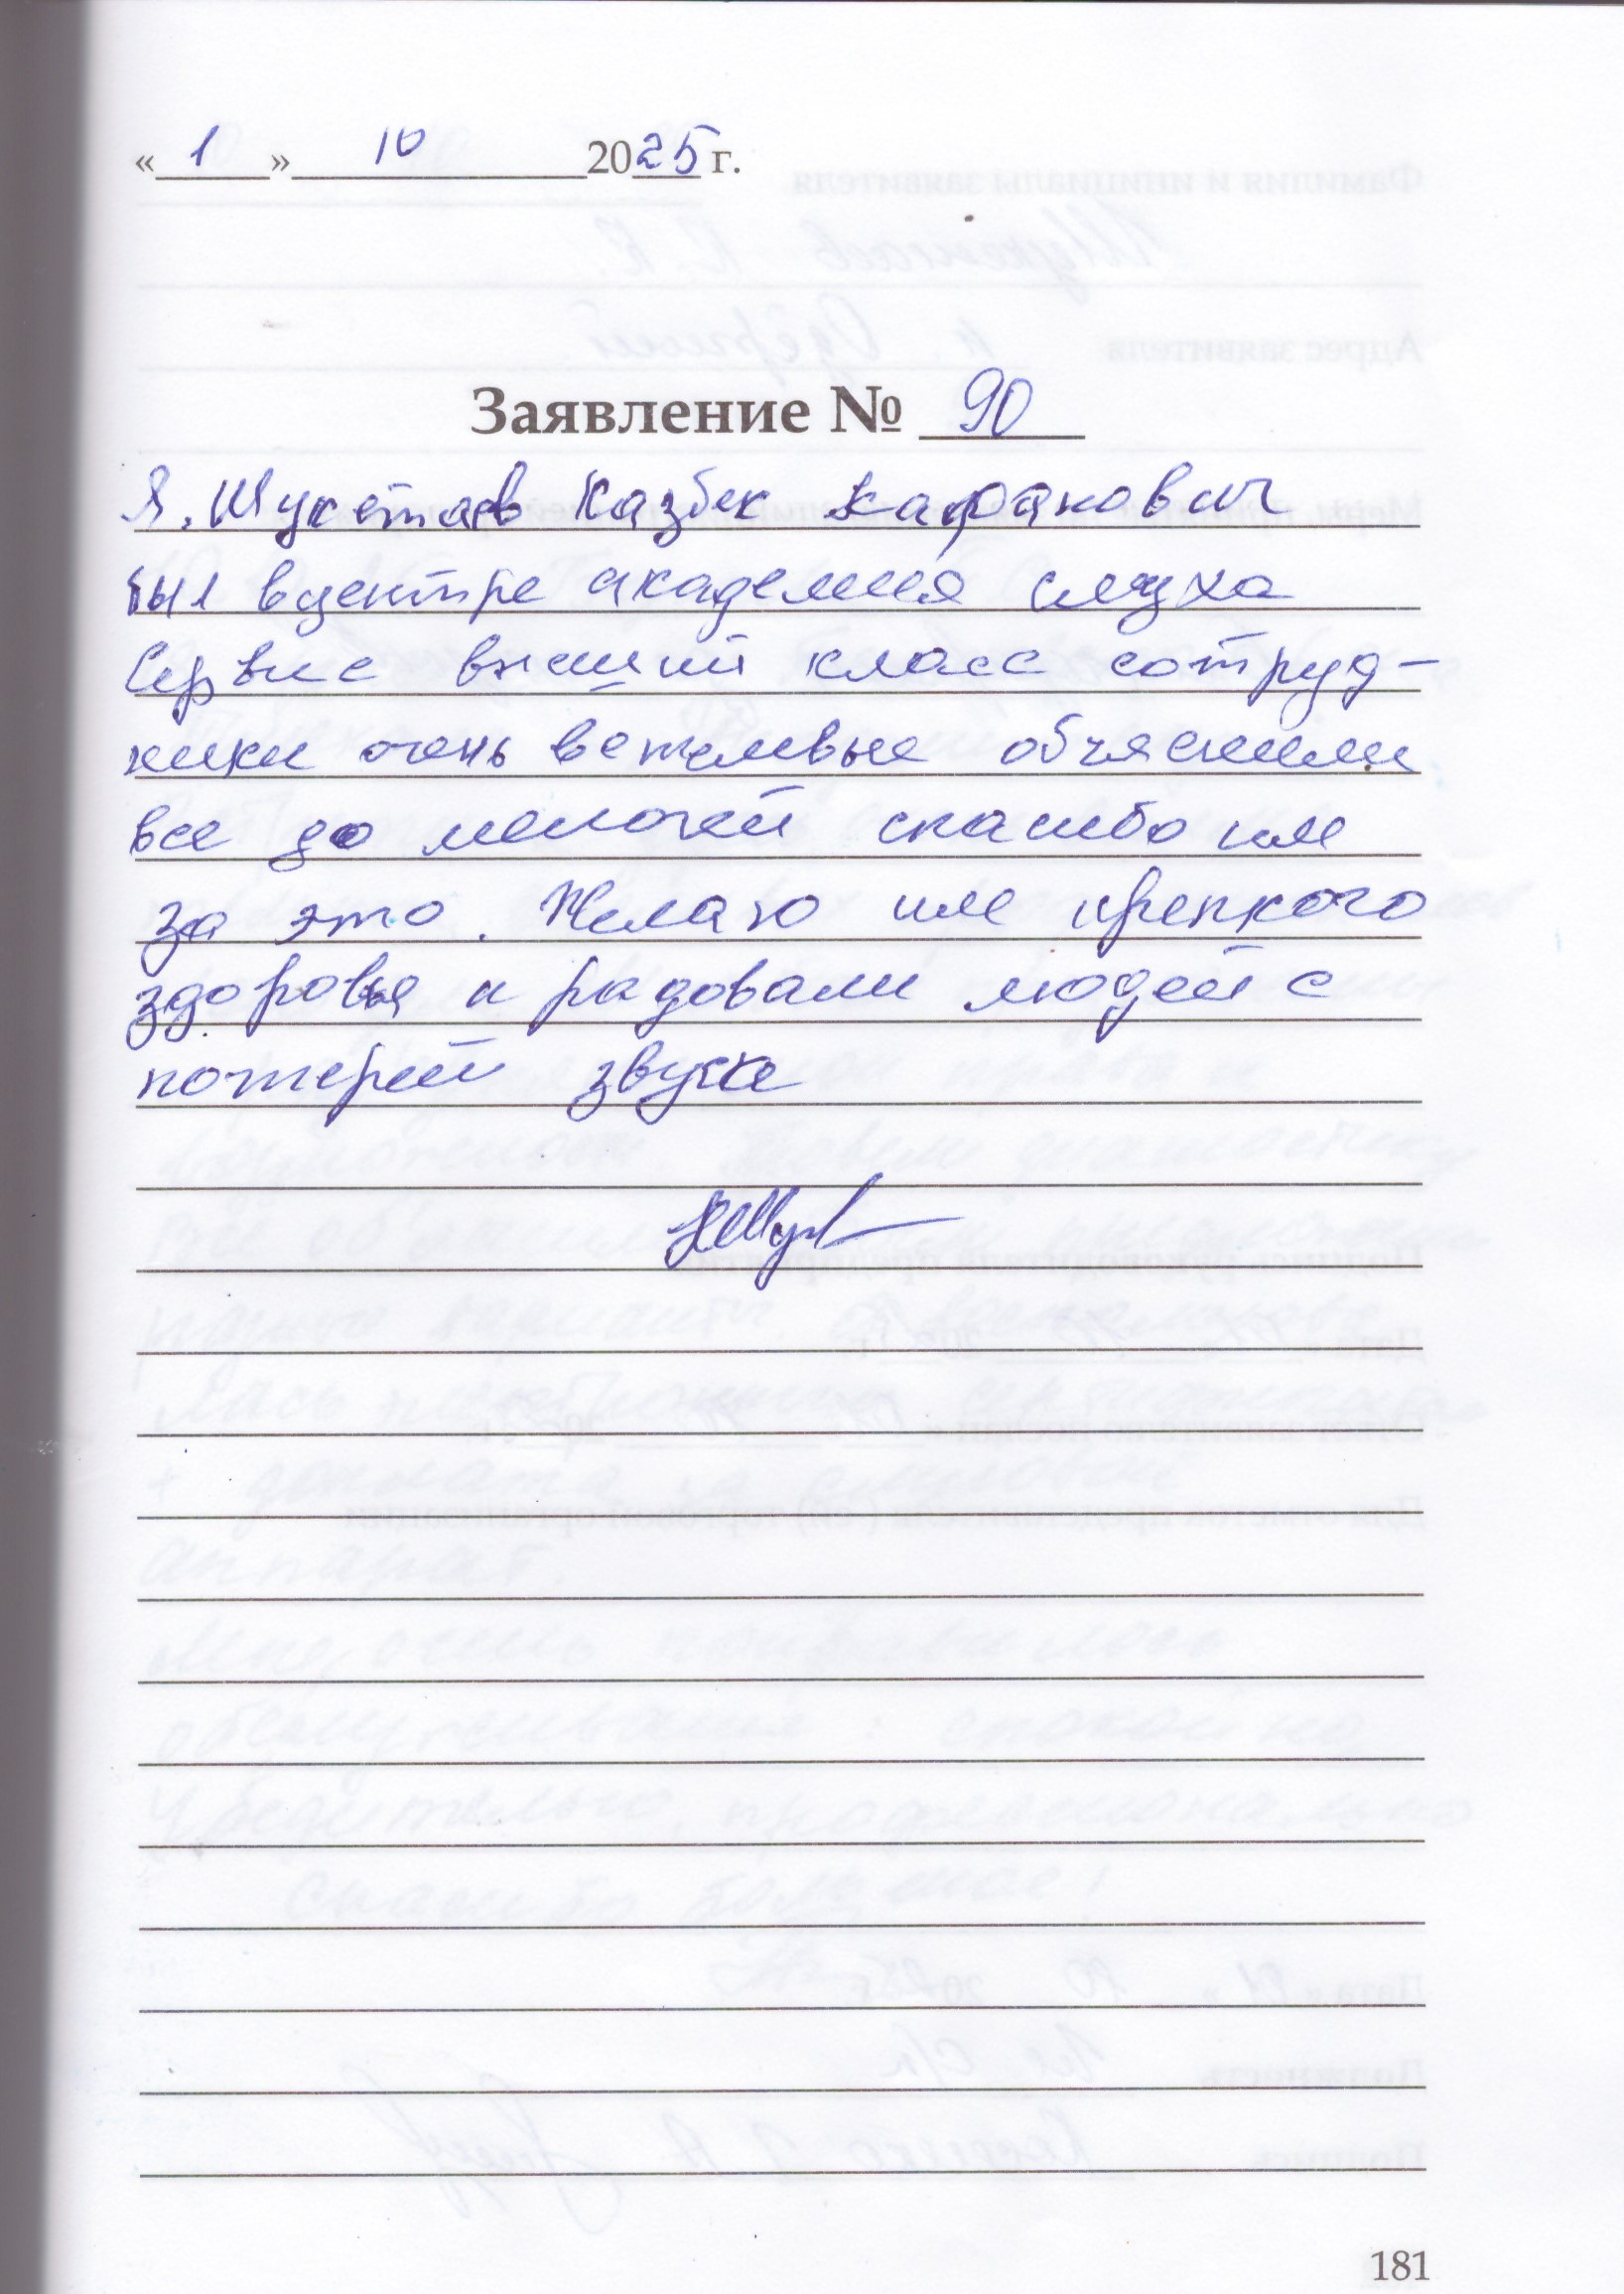 « 1 » 10 2025 г.
Заявление № 90
Я. Шукетаев Казбек Капанович
был в центре академия слуха
Сервис высший класс сотруд-
ники очень вежливые объяснили
все до мелочей спасибо им
за это. Желаю им крепкого
здоровья и радовали людей с
потерей звука
181